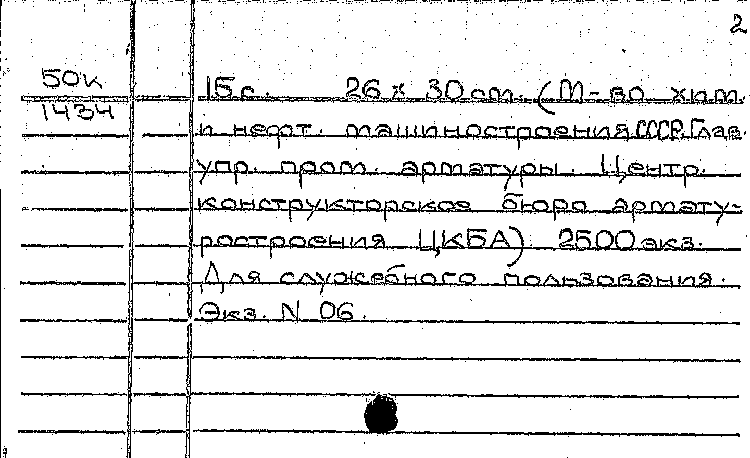 2
50К
1434
15 с. 26 х 30 cm. (М-во хим.
и нефт. машиностроения СССР. Глав.
упр. пром. арматуры. Центр.
конструкторское бюро армату-
ростроения ЦКБА) 2500 экз.
Для служебного пользования.
Экз. N 06.